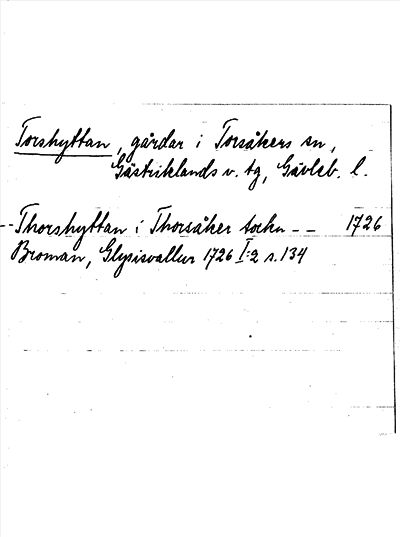 Torshyttan, gårdar i Torsåkers sn,
Gästriklands v. tg, Gävleb. l.
-- Thorshyttan i Thorsåker sochn -- 1726
Broman, Glysisvallur 1726 I:2 s. 134